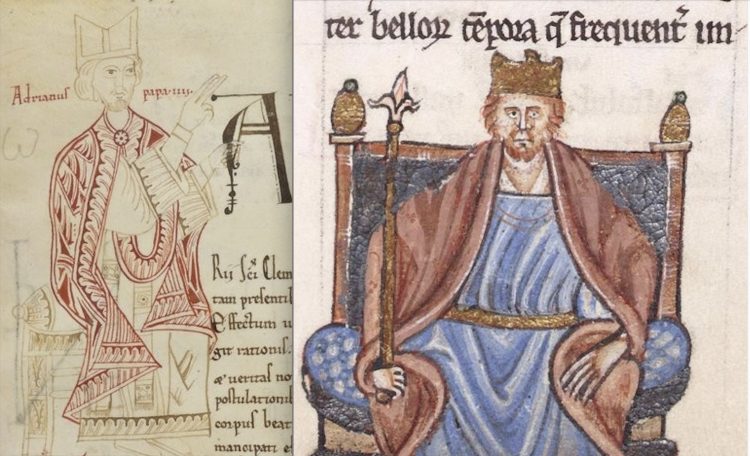 Adrianus papa ·iiii·
A
Rii sc̄i Clem
tam presentib
Effectum u
git rationis.
æ ueritas no
postulation
corpus beat
mancipari e
ter bellorꝝ tēpora q̄ frequent᷑ im